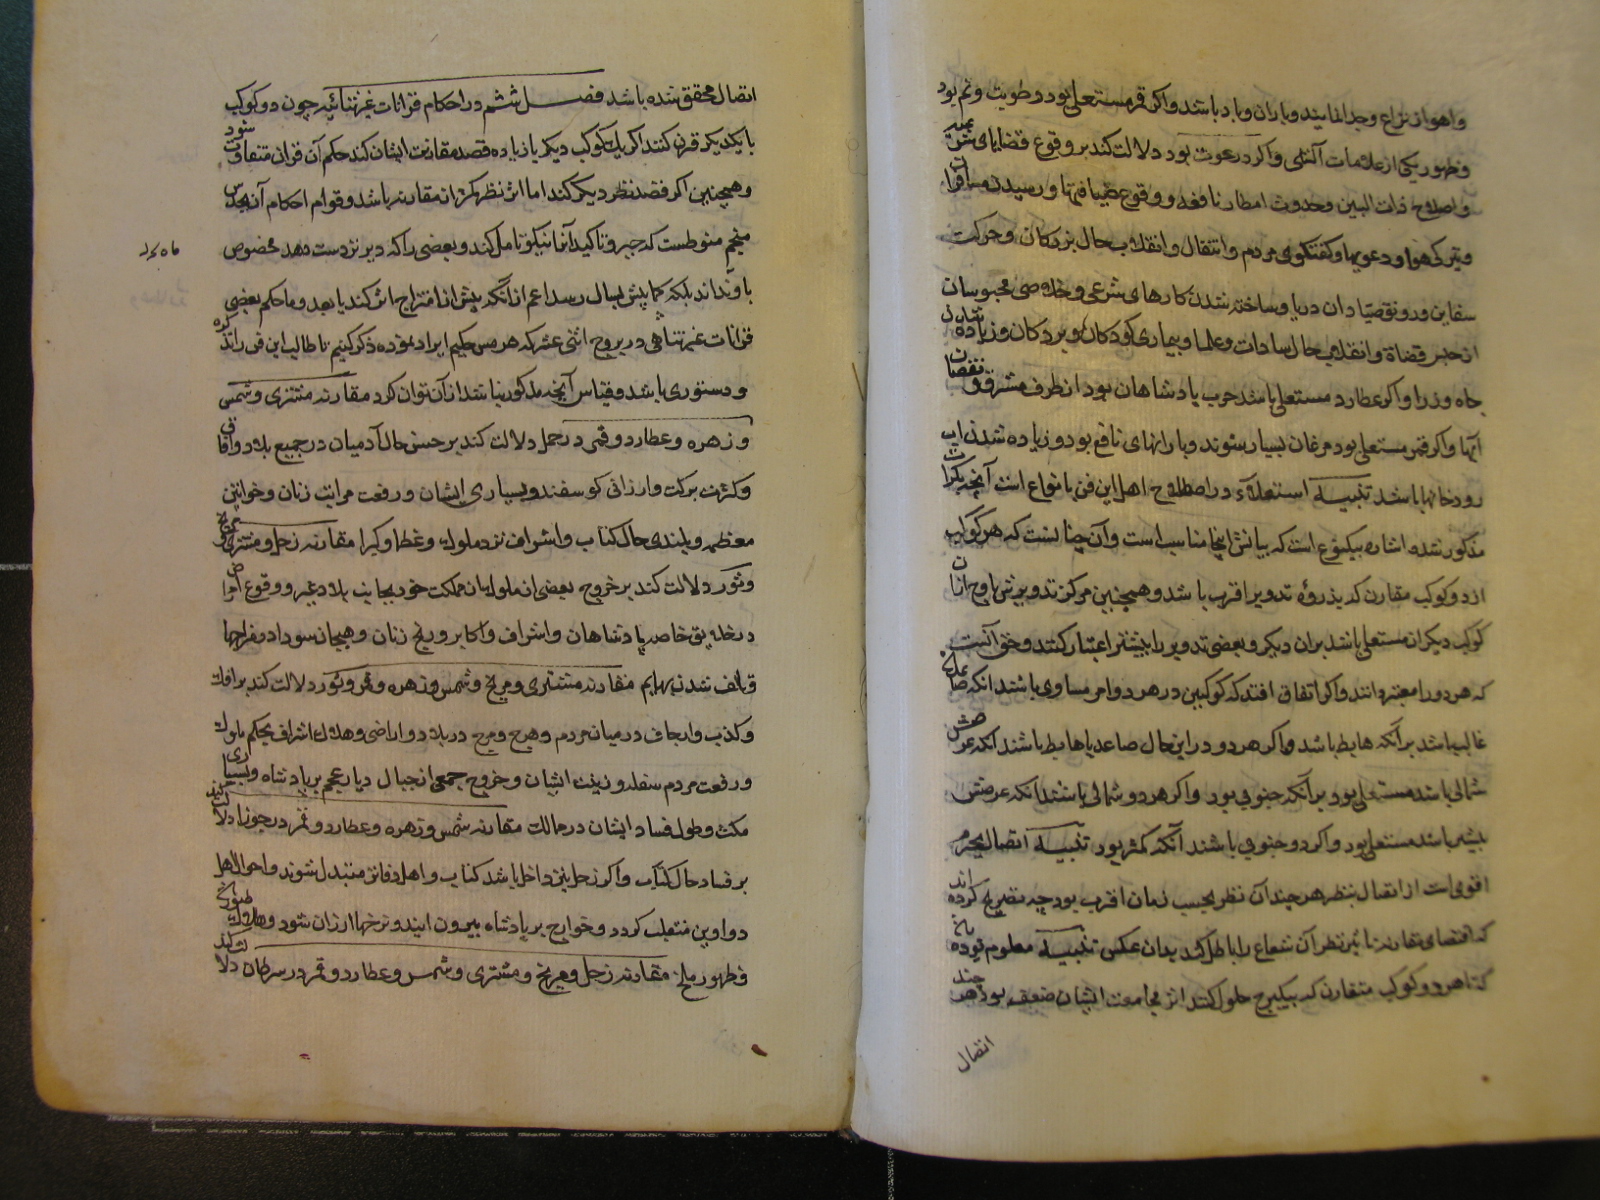 واهواز نزاع وجدا نمایند وباران وباد باشد واکر قمر مستعلی بود رطوبت ونم بود
وظهور یکی از علامات آلتهای واکر در حوت بود دلالت کند بر وقوع قضایای
واصلاح ذات البین وحدوث امطار نافعه ووقوع ورسیدن مسافران
وتیرکی هوا ودعویها وکفتکوی مردم وانتقال وانقلاب حال بزرکان وحرکت
سفاین ورونق صیادان دریا وساخته شدن کارهای شرعی وخلاصی محبوسان
از حبس قضاة وانقلاب حال سادات وعلما وبیماری کودکان وبردکان وزیاده شدن
جاه وزرا واکر عطارد مستعلی باشد حرب پادشاهان بود از طرف مشرق ونقصان
آبها واکر قمر مستعلی بود مرغان بسیار شوند وبارانهای نافع بود وزیاده شدن آب
رودخانها باشد تنبیه استعلاء در اصطلاح اهل این فن بانواع است آنچه
مذکور شده اشاره بیکنوع است که بیانش اینجا مناسب است وآن چنانست که هر کوکب
از دو کوکب مقارن که بذروهٔ تدویر اقرب باشد وهمچنین مرکز تدویرش باوج
کوکب دیکر آن مستعلی باشد بران دیکر وبعضی تدویر را بیشتر اعتبار کنند وحق آنست
که هر دو را معتبر دانند واکر اتفاق افتد که کوکبین در هر دو امر مساوی باشند آنکه صاعد
غالب باشد بر آنکه هابط باشد واکر هر دو در این حال صاعد یا هابط باشند آنکه عرضش
شمالی باشد مستعلی بود بر آنکه جنوبی بود واکر هر دو شمالی باشند آنکه عرضش
بیشتر باشد مستعلی بود واکر دو جنوبی باشند آنکه کمتر بود تنبیه اتصال بجرم
اقوی است از اتصال بنظر هر چند آن نظر بحسب زمان اقرب بود چه تصریح کرده اند
که اقتضای مقارنه تاثیر نظر آن شعاع را باطل کند بدان عکس تنبیه معلوم بوده
که تا هر دو کوکب متقارن که بیکبرج حلول کنند اثر مجامعت ایشان ضعیف بود هر چند
اتصال
اتصال محقق شده باشد فصل ششم در احکام قرانات غیر ثنائیه چون دو کوکب
با یکدیکر قرن کنند اکر یک کوکب دیکر یا زیاده قصد مقارنت ایشان کند حکم آن قران متفاوت شود
وهمچنین اکر قصد نظر دیکر کند اما اثر نظر کمتر از مقارنه باشد وقوام احکام آن بحدس
منجم منوطست که جبر وتاکید آنرا نیکو تامل کند وبعضی را که دیر تر دست دهد مخصوص
باو نداند بلکه پیش بسال رسد اعم از آنکه پیش از امتزاج اثر کند یا بعد وما حکم بعضی
قرانات غیر متناهی در بروج اثنی عشر که هرمس حکیم ایراد نموده ذکر کنیم تا طالب این فن را تذکره
ودستوری باشد وقیاس آنچه مذکور نباشد از آن توان کرد مقارنه مشتری وشمس
وزهره وعطارد وقمر در حمل دلالت کند بر حسن حال آدمیان در جمیع بلاد وآفاق
وکثرت برکت وارزانی کوسفند وبسیاری ایشان ورفعت مراتب زنان وخواتین
معظمه وبلندی حال کتاب واشراف نزد ملوک وعظما وکبرا مقارنه زحل ومشتری ومریخ
وثور دلالت کند بر خروج بعضی از ملوک از مملکت خود بجانب بلاد غیر ووقوع امراض
در خلایق خاصه پادشاهان واشراف واکابر ورنج زنان وهیجان سودا در مزاجها
وتلف شدن بهایم مقارنه مشتری ومریخ وشمس وزهره وقمر وثور دلالت کند بر افک
وکذب وارجاف در میان مردم وهرج ومرج در بلاد واراضی وهلاک اشراف بحکم ملوک
ورفعت مردم سفله وزینت ایشان وخروج جمعی از جبال دیار عجم بر پادشاه وبسیاری
مکث وطول فساد ایشان در ممالک مقارنه شمس وزهره وعطارد وقمر در جوزا دلالت کند
بر فساد حال کتاب واکر زحل نیز داخل باشد کتاب واهل دفاتر متبدل شوند واحوال اهل
دواوین منقلب کردد وخوارج بر پادشاه بیرون آیند ونرخها ارزان شود وهلاک طیور
وظهور ملخ مقارنه زحل ومریخ ومشتری وشمس وعطارد وقمر در سرطان دلالت کند